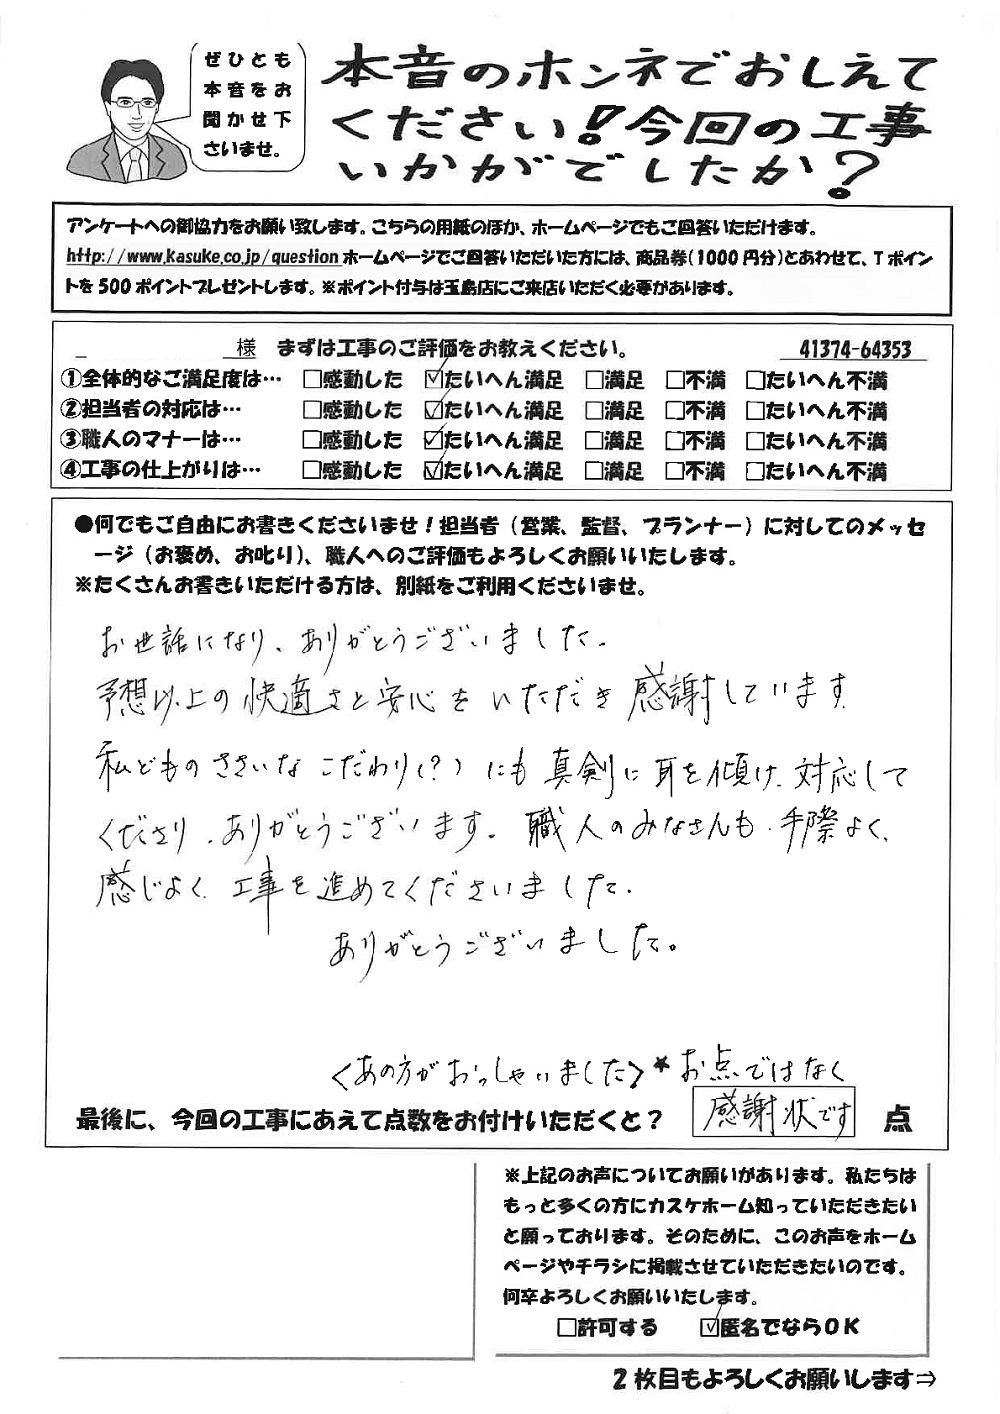 ぜひとも
本音をお
聞かせ下
さいませ。
本音のホンネでおしえて
ください!今回の工事
いかがでしたか?
アンケートへの御協力をお願い致します。こちらの用紙のほか、ホームページでもご回答いただけます。
http://www.kasuke.co.jp/question ホームページでご回答いただいた方には、商品券(1000円分)とあわせて、Tポイン
トを500ポイントプレゼントします。※ポイント付与は玉島店にご来店いただく必要があります。
様 まずは工事のご評価をお教えください。 41374-64353
①全体的なご満足度は… □感動した ☑たいへん満足 □満足 □不満 □たいへん不満
②担当者の対応は… □感動した ☑たいへん満足 □満足 □不満 □たいへん不満
③職人のマナーは… □感動した ☑たいへん満足 □満足 □不満 □たいへん不満
④工事の仕上がりは… □感動した ☑たいへん満足 □満足 □不満 □たいへん不満
●何でもご自由にお書きくださいませ!担当者(営業、監督、プランナー)に対してのメッセ
ージ(お褒め、お叱り)、職人へのご評価もよろしくお願いいたします。
※たくさんお書きいただける方は、別紙をご利用くださいませ。
お世話になり、ありがとうございました。
予想以上の快適さと安心をいただき感謝しています
私どものささいなこだわり(?)にも真剣に耳を傾け、対応して
くださり、ありがとうございます。職人のみなさんも、手際よく、
感じよく、工事を進めてくださいました。
ありがとうございました。
<あの方がおっしゃいました>★お点ではなく
最後に、今回の工事にあえて点数をお付けいただくと? 感謝状です 点
※上記のお声についてお願いがあります。私たちは
もっと多くの方にカスケホーム知っていただきたい
と願っております。そのために、このお声をホーム
ページやチラシに掲載させていただきたいのです。
何卒よろしくお願いいたします。
□許可する ☑匿名でならOK
2枚目もよろしくお願いします⇒